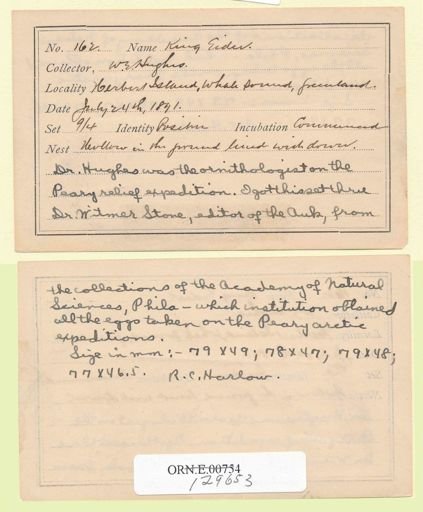 No. 162. Name King Eider.
Collector, W E Hughes.
Locality Herbert Island, Whale Sound, Greenland.
Date July 24th, 1891.
Set 9/4 Identity Positive Incubation Commenced
Nest Hollow in the ground lined with down.
Dr. Hughes was the ornithologist on the
Peary relief expedition. I got this set thru
Dr. Witmer Stone, editor of the Auk, from
the collections of the Academy of Natural
Sciences, Phila - which institution obtained
all the eggs taken on the Peary arctic
expeditions.
Size in mm :- 79 x 49; 78 x 47; 79 x 48;
77 x 46.5. R.C. Harlow.
ORN.E.00754
129653